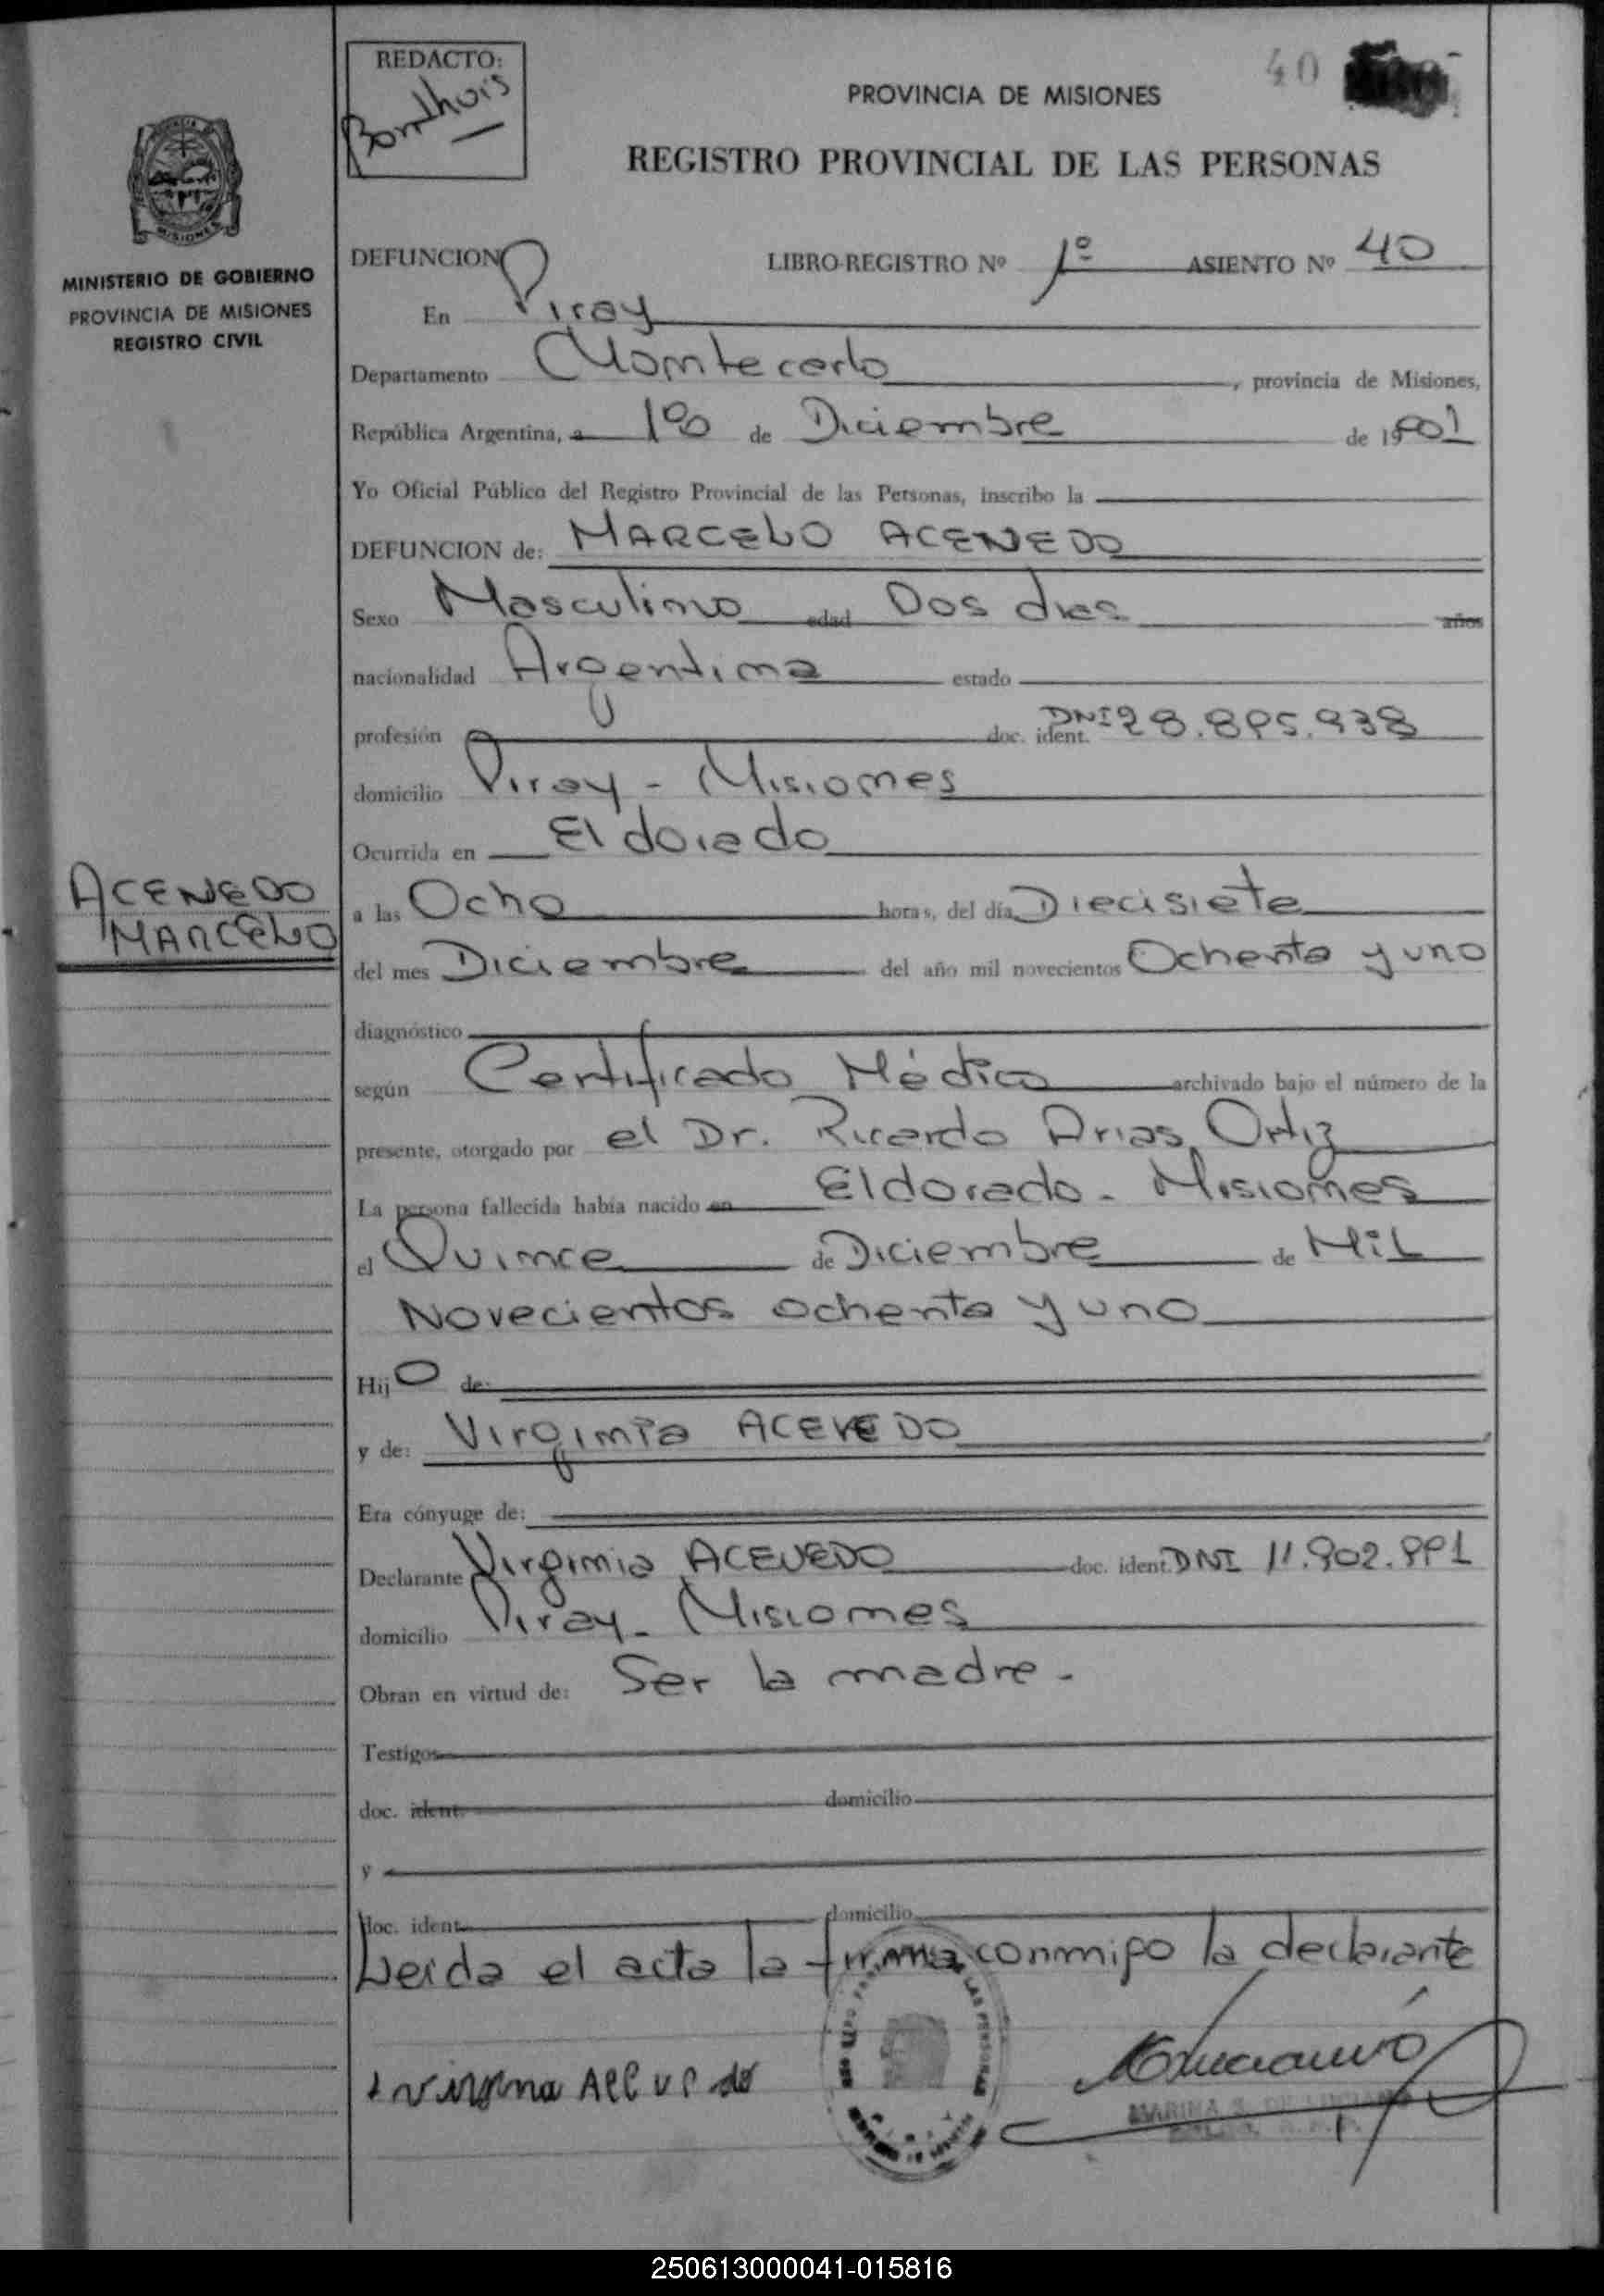 REDACTO:
40
PROVINCIA DE MISIONES
REGISTRO PROVINCIAL DE LAS PERSONAS
MISIONES
MINISTERIO DE GOBIERNO
PROVINCIA DE MISIONES
REGISTRO CIVIL
DEFUNCION LIBRO-REGISTRO Nº 1º ASIENTO Nº 40
En Piray
Departamento Montecarlo, provincia de Misiones,
República Argentina, a de Diciembre de 19
Yo Oficial Público del Registro Provincial de las Personas, inscribo la
DEFUNCION de: MARCELO ACENEDO
Sexo Masculino edad Dos dias años
nacionalidad Argentina estado
profesión doc. ident. DNI 28.895.938
domicilio Piray - Misiones
Ocurrida en El dorado
ACENEDO
MARCELO
a las Ocho horas, del día Diecisiete
del mes Diciembre del año mil novecientos Ochenta y uno
diagnóstico
según Certificado Médico archivado bajo el número de la
presente, otorgado por el Dr. Ricardo Arias Ortiz
La persona fallecida había nacido en Eldorado - Misiones
el Quince de Diciembre de Mil
Novecientos ochenta y uno
Hijo de:
y de: Virginia ACEVEDO
Era cónyuge de:
Declarante Virginia ACEVEDO doc. ident. DNI 11.902.991
domicilio Piray - Misiones
Obran en virtud de: Ser la madre -
Testigos
doc. ident. domicilio
y
doc. ident. domicilio
Leida el acta la firma conmigo la declarante
MARINA
250613000041-015816